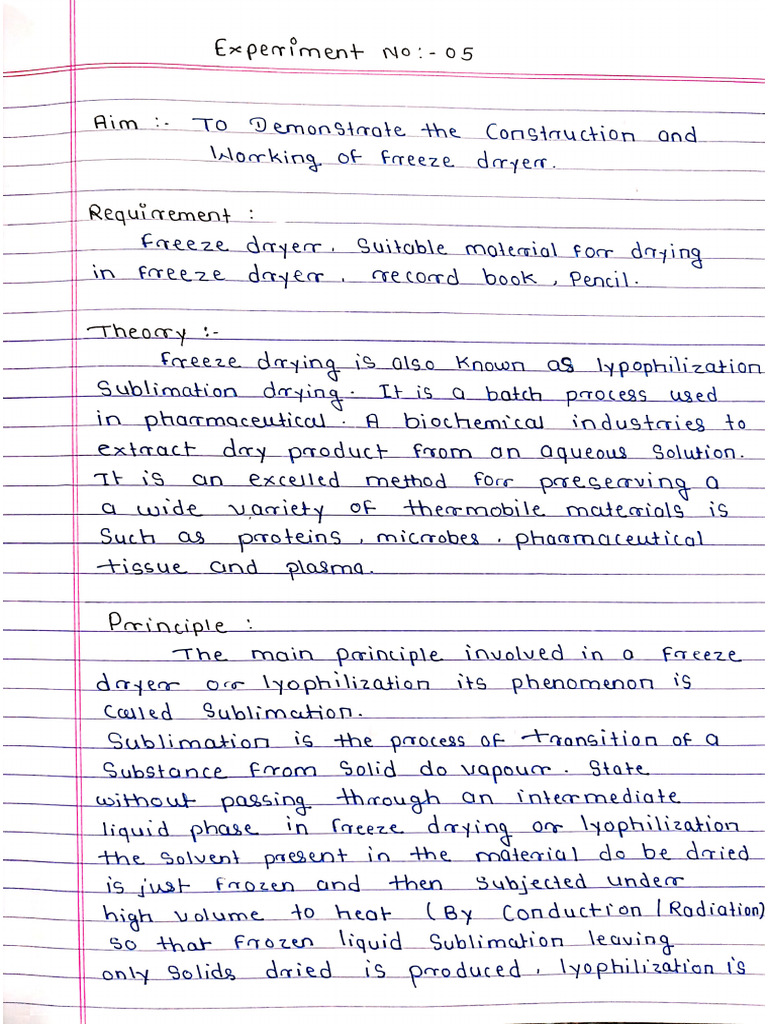 Experiment No:- 05
Aim :- To Demonstrate the Construction and
Working of freeze dryer.
Requirement :
freeze dryer. Suitable material for drying
in freeze dryer, record book, Pencil.
Theory :-
freeze drying is also known as lypophilization
Sublimation drying. It is a batch process used
in pharmaceutical. A biochemical industries to
extract dry product from an aqueous solution.
It is an excelled method for preserving a
a wide variety of thermobile materials is
Such as proteins, microbes, pharmaceutical
tissue and plasma.
Principle :
The main principle involved in a freeze
dryer or lyophilization its phenomenon is
called Sublimation.
Sublimation is the process of transition of a
Substance from Solid do vapour. State
without passing through an intermediate
liquid phase in freeze drying or lyophilization
the solvent present in the material do be dried
is just frozen and then subjected under
high volume to heat (By Conduction / Radiation)
So that frozen liquid Sublimation leaving
only Solids dried is produced, lyophilization is